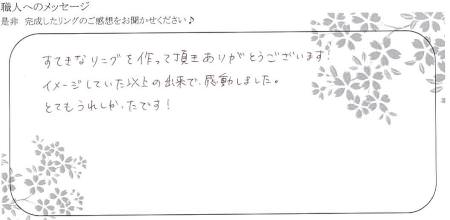 職人へのメッセージ
是非 完成したリングのご感想をお聞かせください♪
すてきなリングを作って頂きありがとうございます!
イメージしていた以上の出来で、感動しました。
とてもうれしかったです!